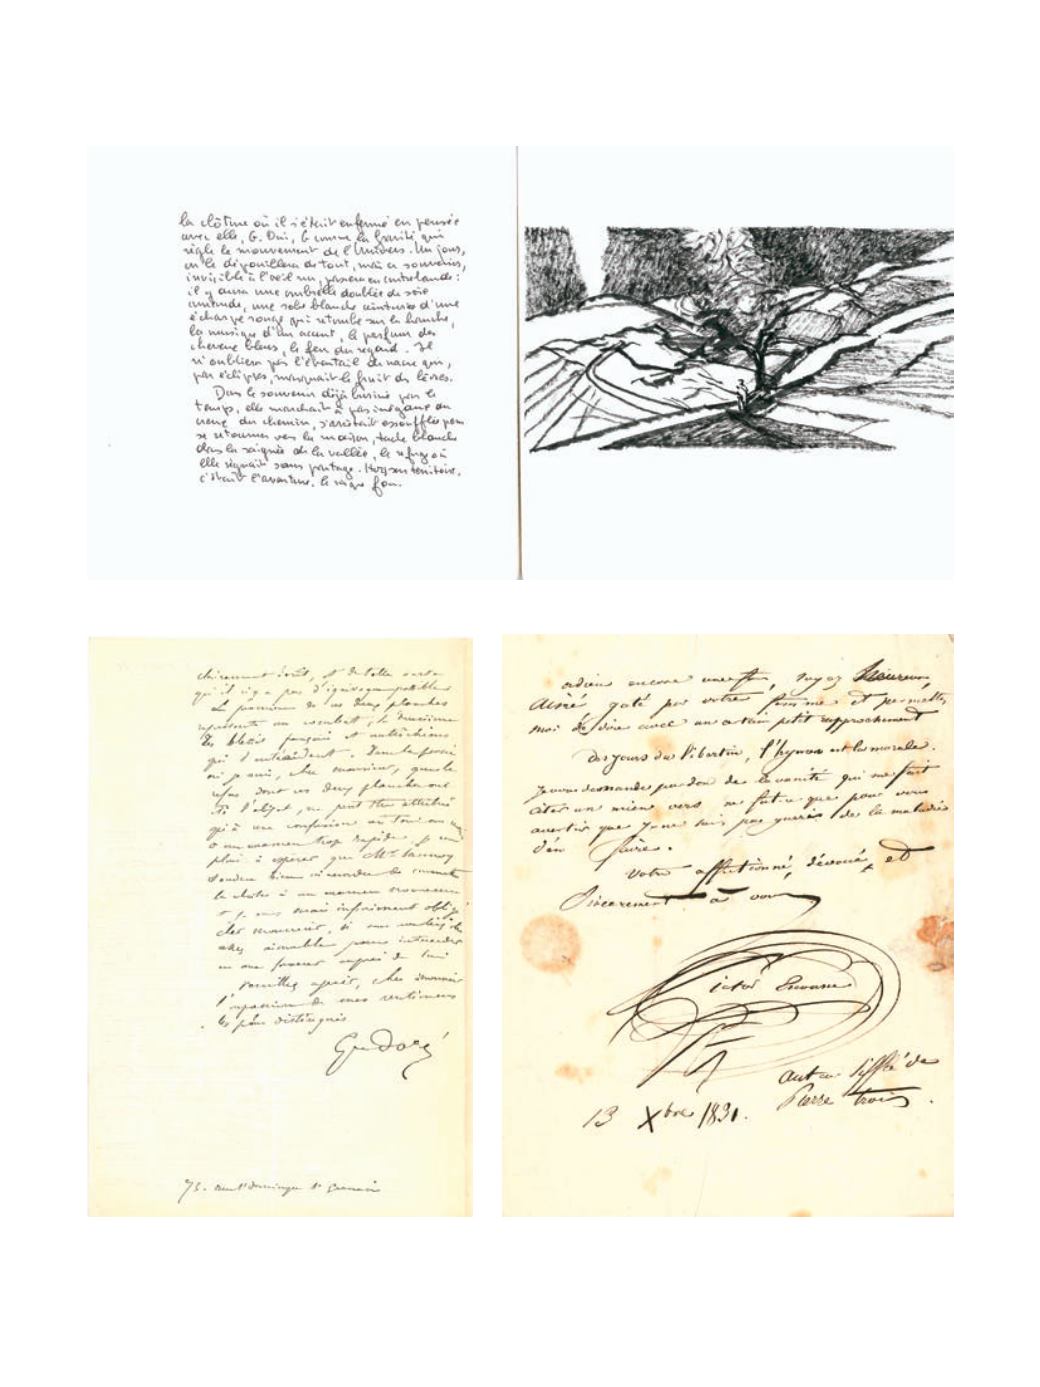 la clôture où il s'était enfermé en pensée
avec elle, G. Oui, G comme la gravité qui
règle le mouvement de l'Univers. Un jour,
on le dépouillera de tout, mais ce souvenir,
invisible à l'œil nu, passera en contrebande :
il y aura une ombrelle doublée de soie
amande, une robe blanche ceinturée d'une
écharpe rouge qui retombe sur la hanche,
la musique d'un accent, le parfum des
cheveux bleus, le feu du regard. Il
n'oubliera pas l'éventail de nacre qui,
par éclipses, masquait le fruit des lèvres.
Dans le souvenir déjà buriné par le
temps, elle marchait à pas inégaux au
creux du chemin, s'arrêtait essoufflée pour
se retourner vers la maison, tache blanche
dans la saignée de la vallée, le refuge où
elle régnait sans partage. Hors son territoire,
c'était l'aventure, le risque fou.
clairement écrit, et de telle sorte
qu'il n'y a pas d'équivoque possible
La première de ces deux planches
représente un combat ; la deuxième
des blessés français et autrichiens
qui
où je suis, cher monsieur, que le
refus dont ces deux planches ont
été l'objet, ne peut être attribué
qu'à une confusion
à un examen trop rapide, je me
plais à espérer que Mr
voudra bien
à un examen nouveau
et je vous serais infiniment obligé
cher monsieur, si vous vouliez être
assez aimable pour intercéder
en ma faveur auprès de lui
Veuillez agréer, cher monsieur
l'expression de mes sentiments
les plus distingués
Gve Doré
73. rue St Dominique St Germain
adieu encore une fois, soyez heureux,
aimé gaté par votre femme et permettez
moi de dire avec un certain petit rapprochement
des jours du libertin, l'hymen est la morale.
je vous demande pardon de la vanité qui me fait
citer un mien vers ne fut-ce que pour vous
avertir que je ne suis pas guéri de la maladie
d'en faire.
Votre affectionné, dévoué, et
Sincerement à vous
Victor Escousse
auteur sifflé de
Pierre trois.
13 Xbre 1831.